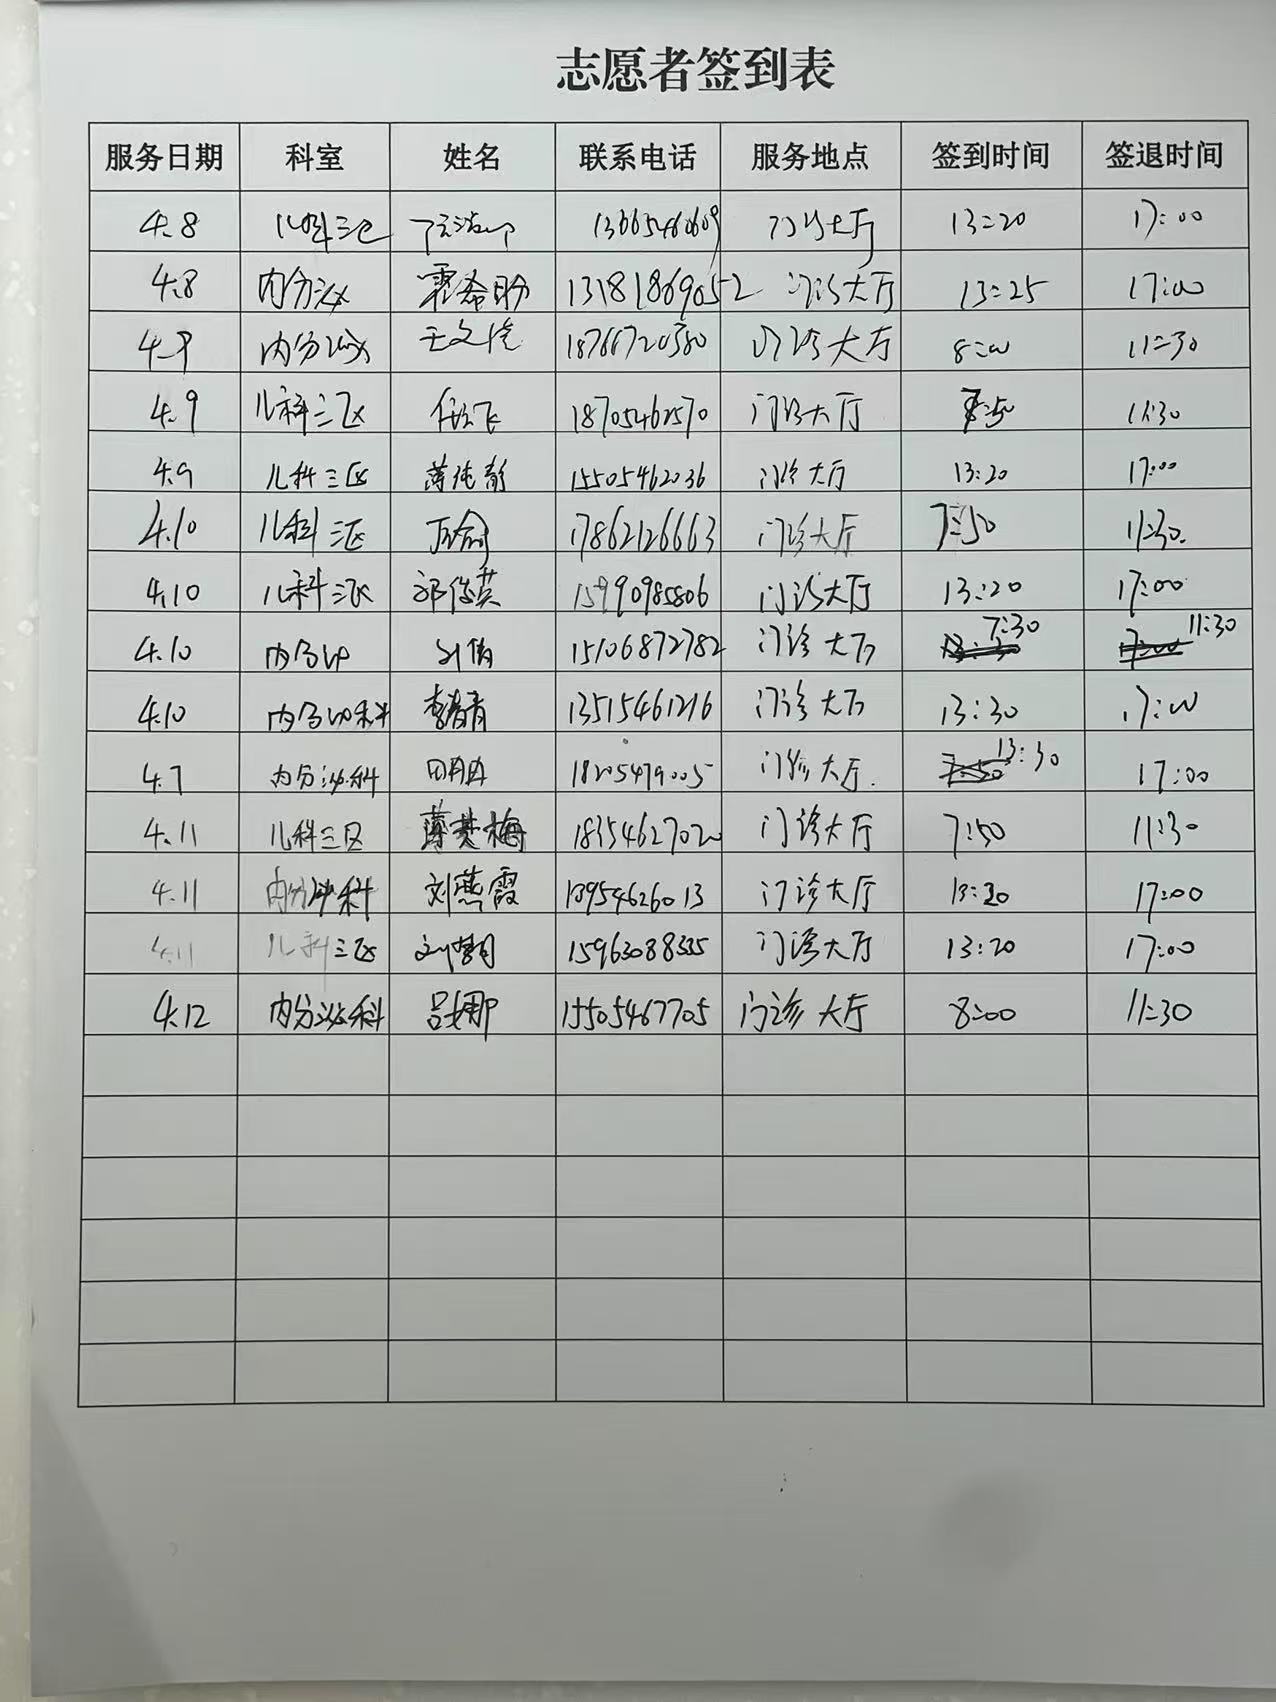 志愿者签到表
服务日期 科室 姓名 联系电话 服务地点 签到时间 签退时间
4.8 儿科三区 13665460609 门诊大厅 13:20 17:00
4.8 内分泌 霍希盼 13181869052 门诊大厅 13:25 17:00
4.9 内分泌 王文 18766720380 门诊大厅 8:00 11:30
4.9 儿科三区 任飞 18705462570 门诊大厅 7:50 11:30
4.9 儿科三区 薄纯静 15505462036 门诊大厅 13:20 17:00
4.10 儿科三区 17862126663 门诊大厅 7:50 11:30.
4.10 儿科三区 郭俊英 15990985806 门诊大厅 13:20 17:00
4.10 内分泌 刘倩 15106872782 门诊大厅 7:30 11:30
4.10 内分泌科 李春青 13515461216 门诊大厅 13:30 17:00
4.7 内分泌科 田冉冉 18205479005 门诊大厅. 13:30 17:00
4.11 儿科三区 薄梅 18354627020 门诊大厅 7:50 11:30
4.11 内分泌科 刘燕霞 13954626013 门诊大厅 13:20 17:00
4.11 儿科三区 刘梦月 15963088335 门诊大厅 13:20 17:00
4.12 内分泌科 吕娜 15505467705 门诊大厅 8:00 11:30